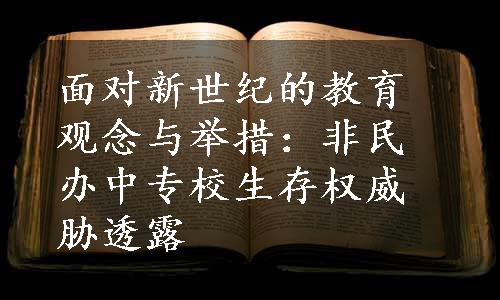 面对新世纪的教育
观念与举措：非民
办中专校生存权威
胁透露